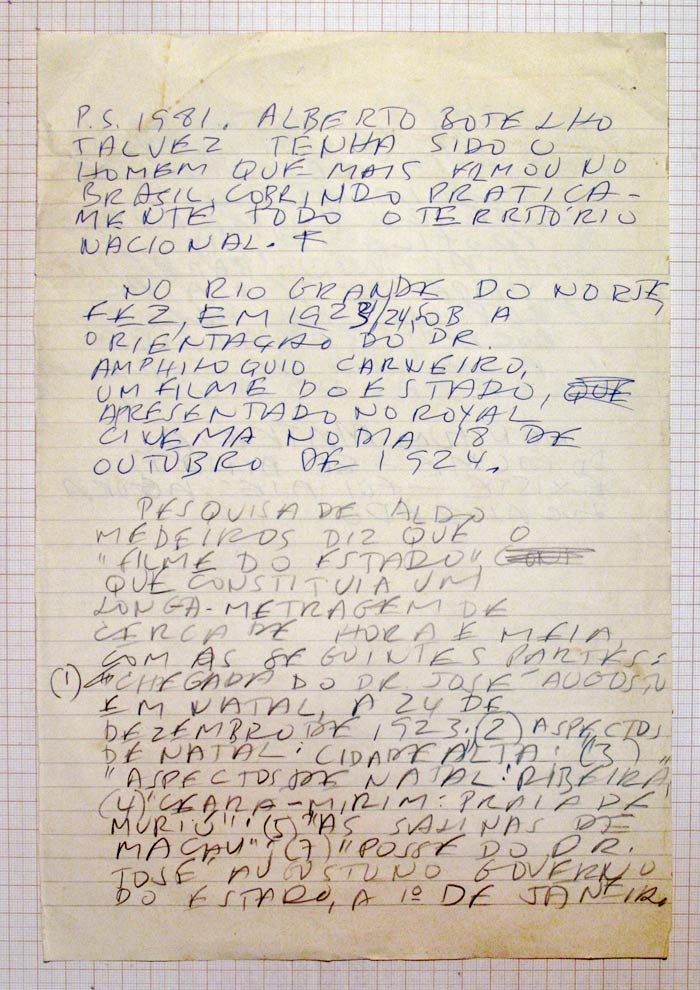 P.S. 1981. ALBERTO BOTELHO
TALVEZ TENHA SIDO O
HOMEM QUE MAIS FILMOU NO
BRASIL, COBRINDO PRATICA-
MENTE TODO O TERRITÓRIO
NACIONAL.
NO RIO GRANDE DO NORTE,
FEZ, EM 1923/24, SOB A
ORIENTAÇÃO DO DR.
AMPHILOQUIO CARNEIRO,
UM FILME DO ESTADO, QUE
APRESENTADO NO ROYAL
CINEMA NO DIA 18 DE
OUTUBRO DE 1924.
PESQUISA DE ALDO
MEDEIROS DIZ QUE O
"FILME DO ESTADO",
QUE CONSTITUIA UM
LONGA-METRAGEM DE
CERCA DE HORA E MEIA,
COM AS SEGUINTES PARTES:
(1) "CHEGADA DO DR. JOSÉ AUGUSTO
EM NATAL, A 24 DE
DEZEMBRO DE 1923. (2) ASPECTOS
DE NATAL: CIDADE ALTA: (3)
"ASPECTOS DE NATAL: RIBEIRA"
(4) "CEARA-MIRIM: PRAIA DE
MURIÚ"; (5) "AS SALINAS DE
MACAU"; (7) "POSSE DO DR.
JOSÉ AUGUSTO NO GOVERNO
DO ESTADO, A 1º DE JANEIR.